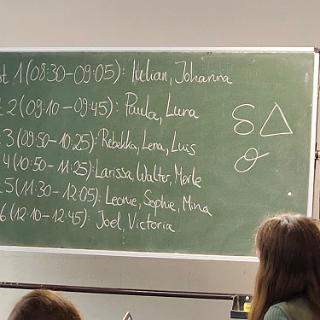 st 1 (08:30-09:05): Iulian, Johanna
2 (09:10-09:45): Paula, Luna
3 (09:50-10:25): Rebekka, Lena, Luis
4 (10:50-11:25): Larissa, Walter, Merle
5 (11:30-12:05): Leonie, Sophie, Mina
6 (12:10-12:45): Joel, Victoria
δ △